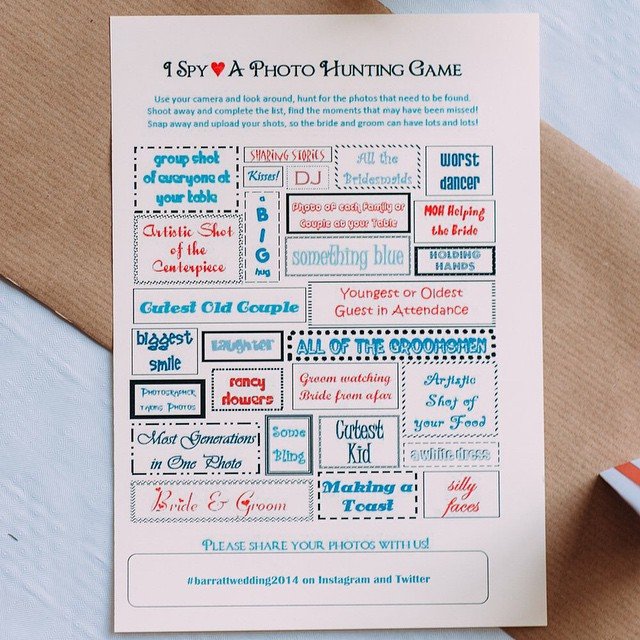 I Spy ♥ A Photo Hunting Game
Use your camera and look around, hunt for the photos that need to be found.
Shoot away and complete the list, find the moments that may have been missed!
Snap away and upload your shots, so the bride and groom can have lots and lots!
group shot
of everyone at
your table
SHARING STORIES
Kisses!
DJ
All the
Bridesmaids
worst
dancer
Artistic Shot
of the
Centerpiece
a
BIG
hug
Photo of each Family or
Couple at your Table
MOH Helping
the Bride
something blue
HOLDING
HANDS
Cutest Old Couple
Youngest or Oldest
Guest in Attendance
biggest
smile
Laughter
ALL OF THE GROOMSMEN
Photographer
taking Photos
fancy
flowers
Groom watching
Bride from afar
Artistic
Shot of
your Food
Most Generations
in One Photo
Some
Bling
Cutest
Kid
a white dress
Bride & Groom
Making a
Toast
silly
faces
Please share your photos with us!
#barrattwedding2014 on Instagram and Twitter